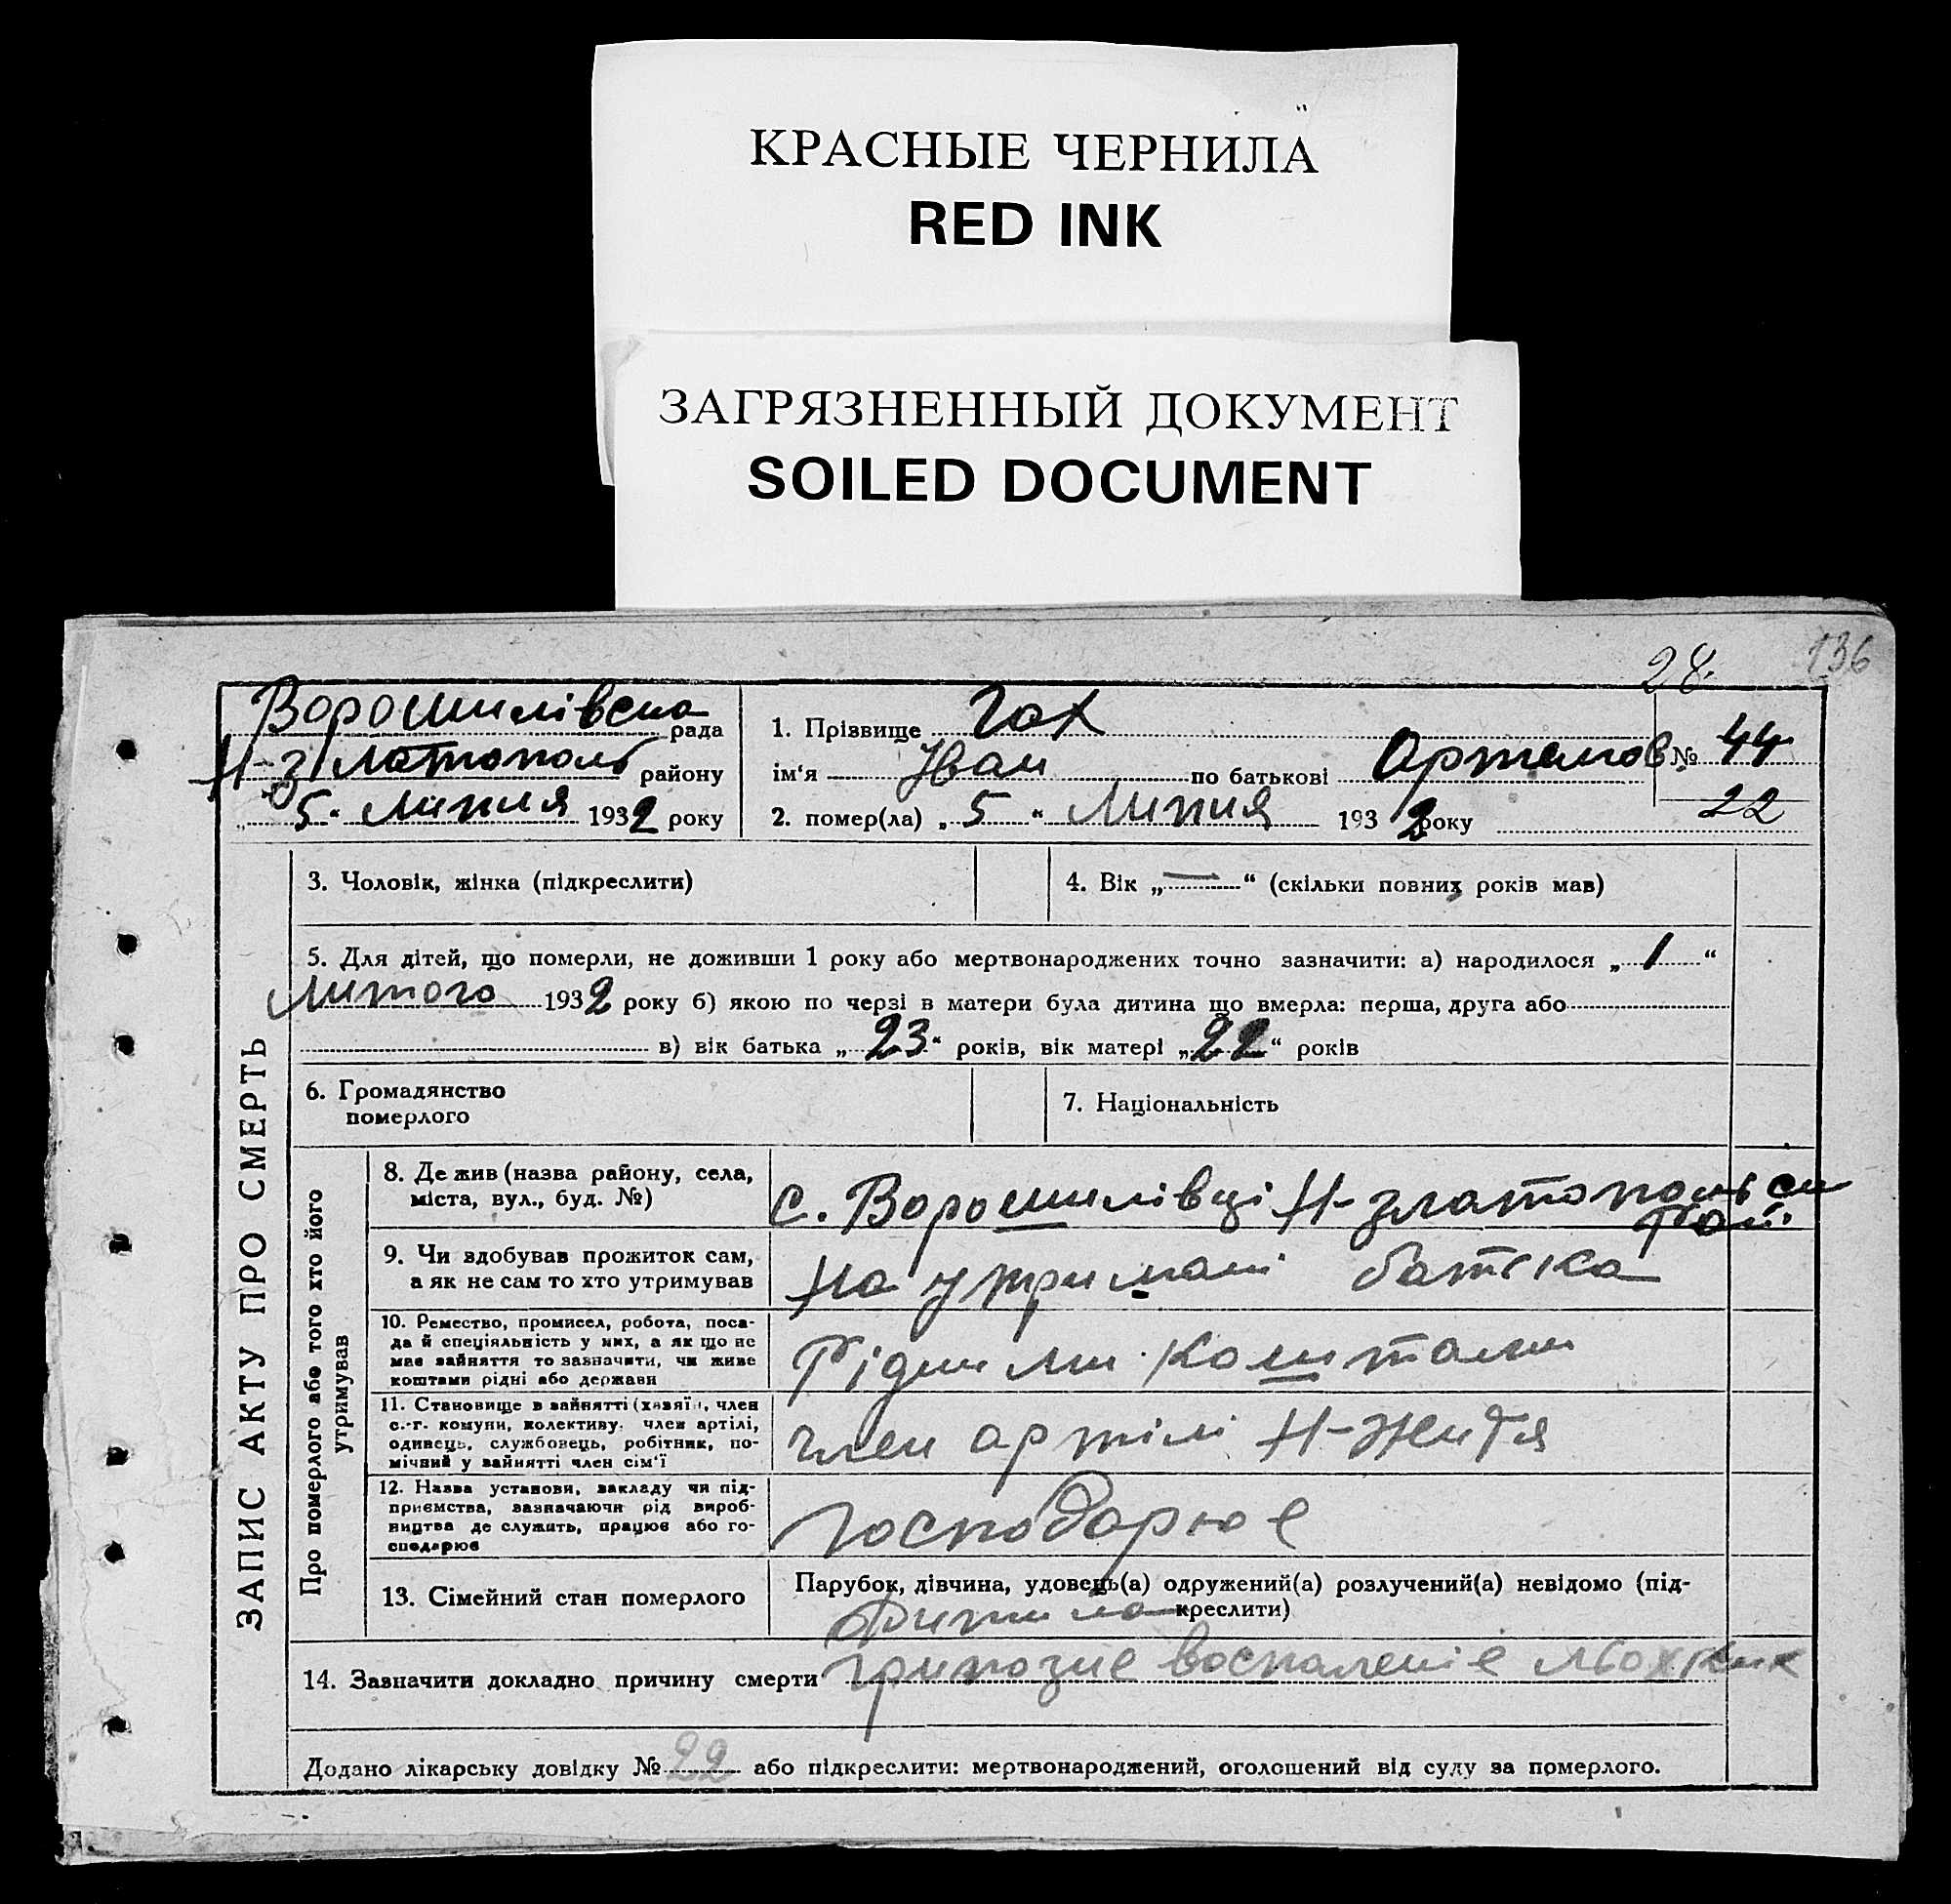 КРАСНЫЕ ЧЕРНИЛА
RED INK
ЗАГРЯЗНЕННЫЙ ДОКУМЕНТ
SOILED DOCUMENT
28. 136
ЗАПИС АКТУ ПРО СМЕРТЬ
Ворошилівська рада
Н-Златополь району
"5" Липня 1932 року
1. Прізвище Гах
ім'я Іван по батькові Артемов № 44
2. помер(ла) „5“ Липня 1932 року 22
3. Чоловік, жінка (підкреслити) 4. Вік „—“ (скільки повних років мав)
5. Для дітей, що померли, не доживши 1 року або мертвонароджених точно зазначити: а) народилося „1“
Лютого 1932 року б) якою по черзі в матери була дитина що вмерла: перша, друга або
в) вік батька „23“ років, вік матері „22“ років
6. Громадянство
померлого
7. Національність
Про померлого або того хто його
утримував
8. Де жив (назва району, села,
міста, вул., буд. №)
с. Ворошилівці Н-златопольськ
рай.
9. Чи вдобував прожиток сам,
а як не сам то хто утримував
На утримані батька
10. Ремество, промисел, робота, поса-
да й спеціяльність у них, а як що не
має вайняття то зазначити, чи живе
коштами рідні або держави
Рідними коштами
11. Становище в вайнятті (хазяїн, член
с.-г. комуни, колективу, член артілі,
одинець, службовець, робітник, по-
мічний у вайнятті член сім'ї
член артілі Н-Життя
12. Назва установи, закладу чи під-
приємства, зазначаючи рід вироб-
ництва де служить, працює або го-
сподарює
господарює
13. Сімейний стан померлого
Парубок, дівчина, удовець(а) одружений(а) розлучений(а) невідомо (під-
креслити)
Дитина
14. Зазначити докладно причину смерти грипозне воспаленіє льохких
Додано лікарську довідку № 22 або підкреслити: мертвонароджений, оголошений від суду за померлого.